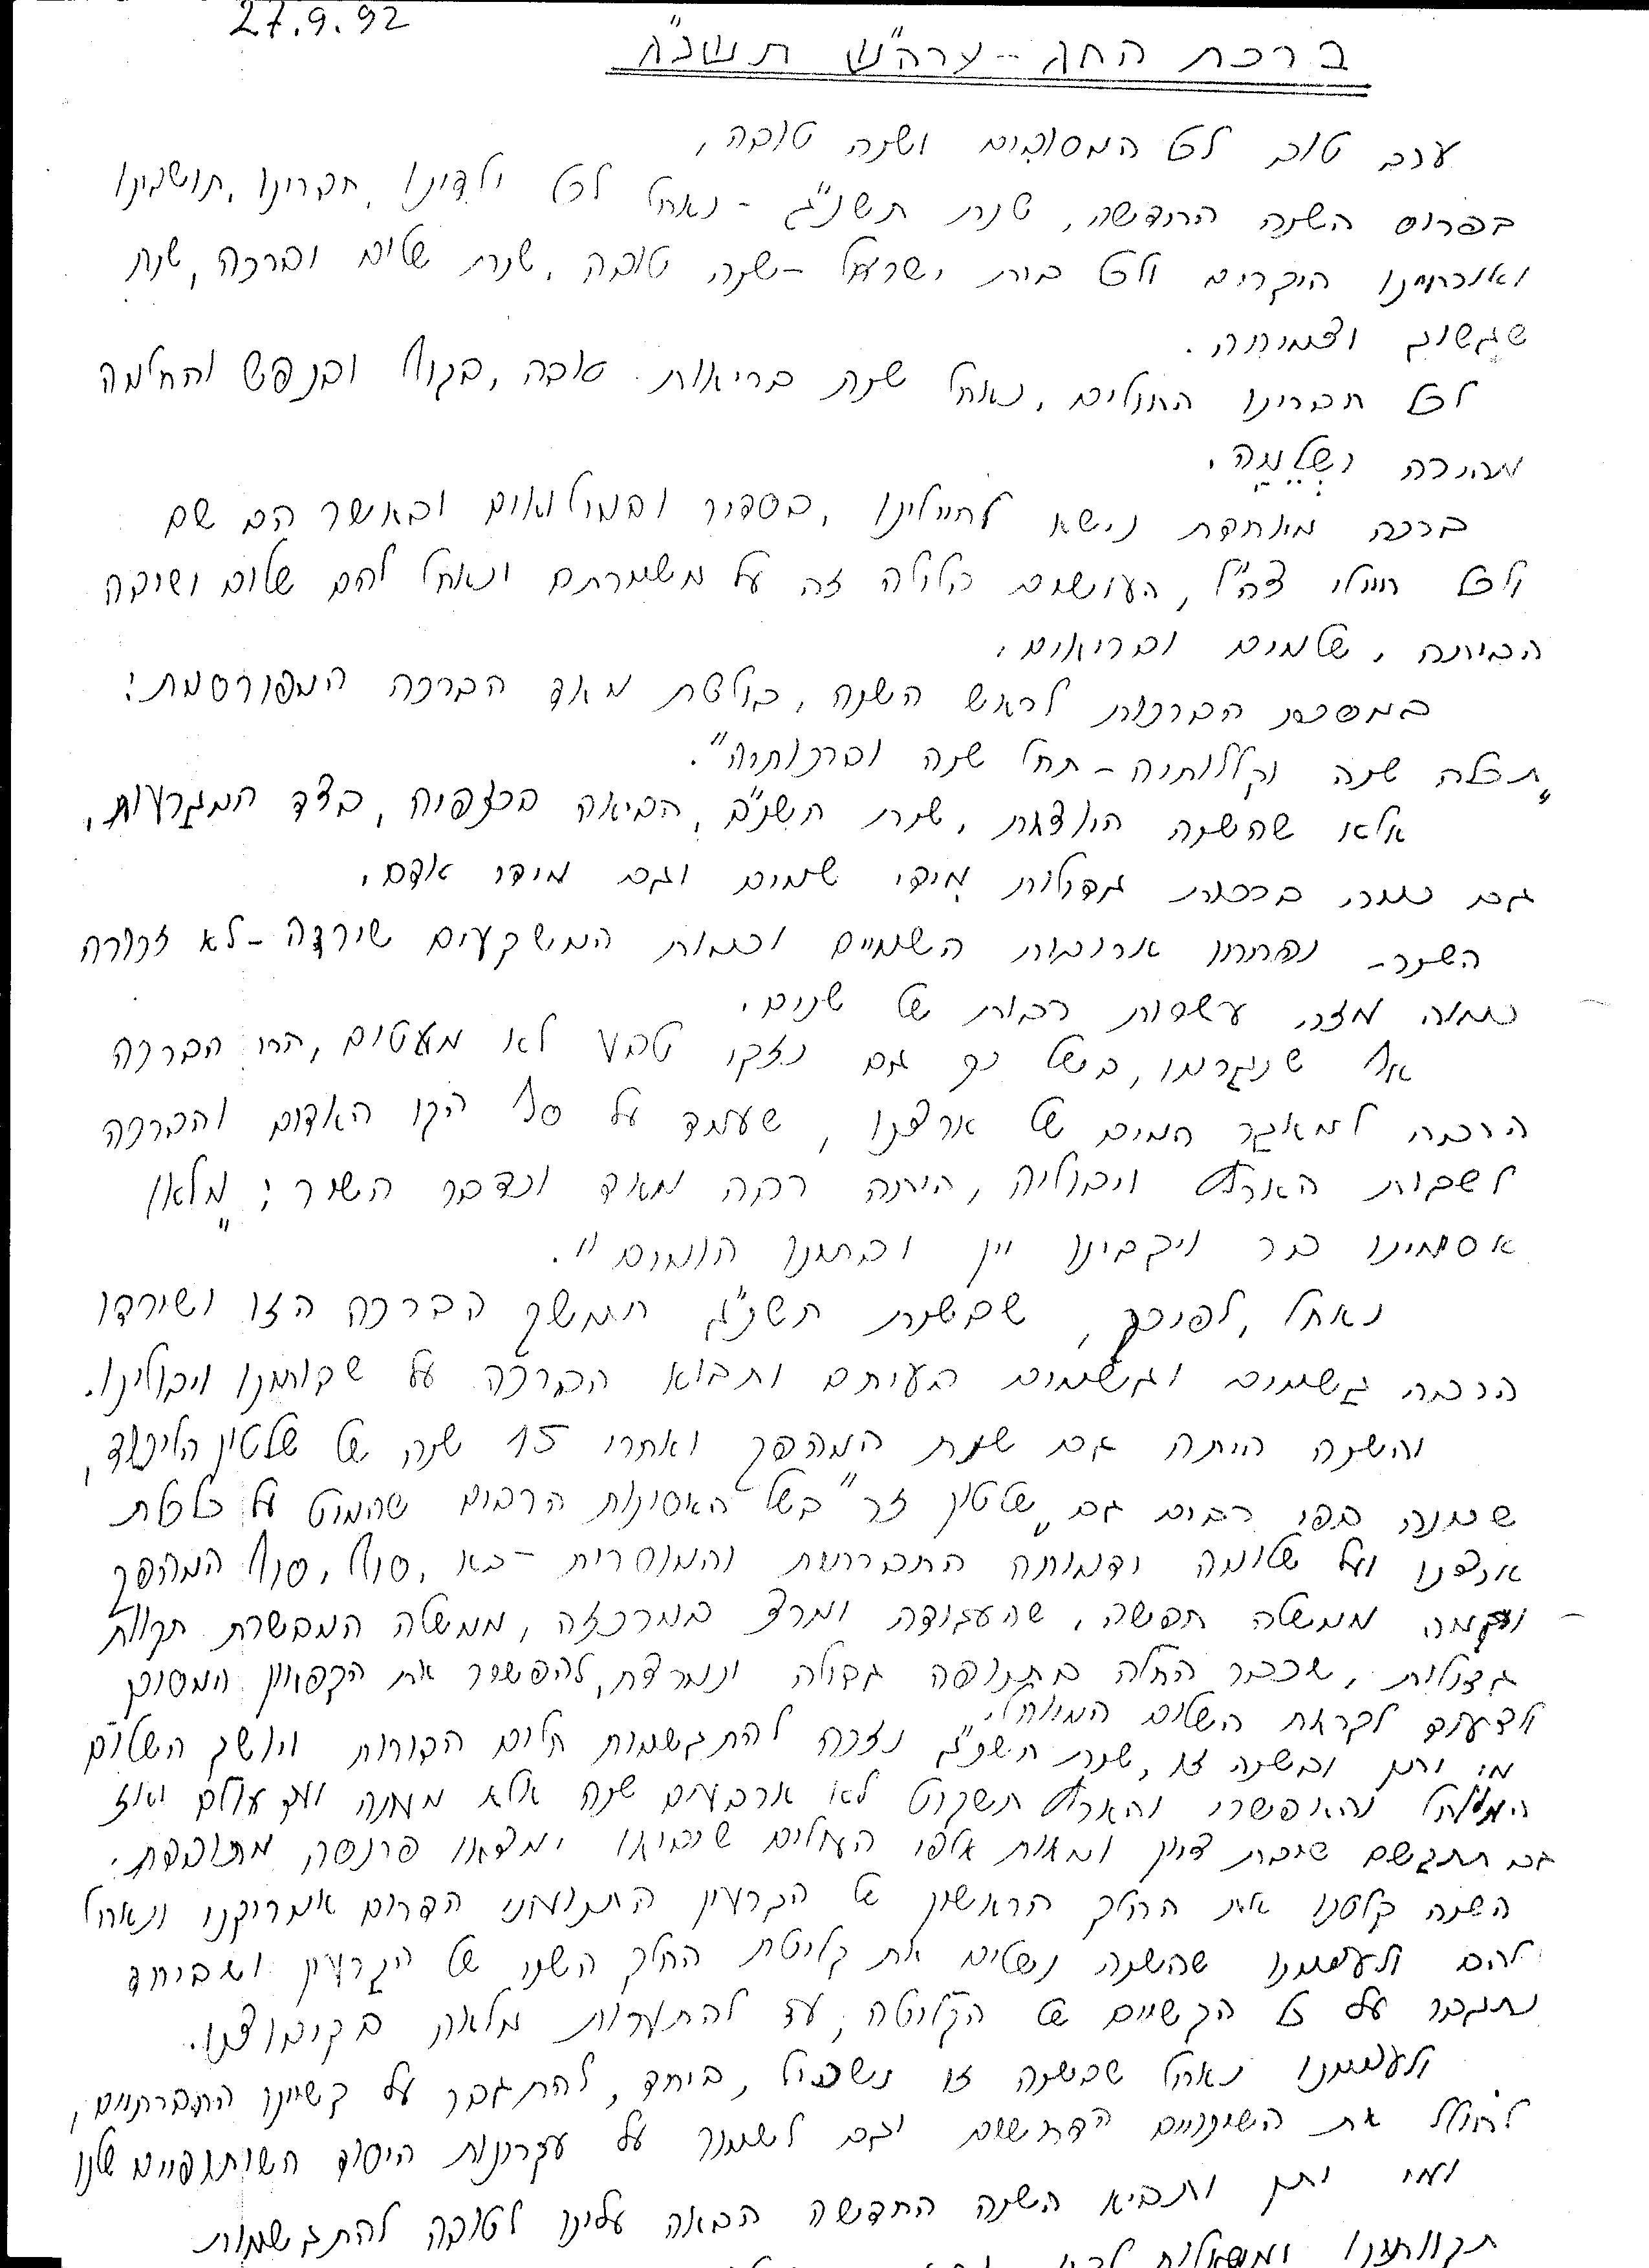 27.9.92
ברכת החג - ערה"ש תשנ"ג
ערב טוב לכל המסובים ושנה טובה,
בפרוס השנה החדשה, שנת תשנ"ג - נאחל לכל ילדינו, חברינו, תושבינו
ואורחינו היקרים ולכל בית ישראל - שנה טובה, שנת שלום וברכה, שנת
שגשוג וצמיחה.
לכל חברינו החולים, נאחל שנת בריאות טובה, בגוף ובנפש והחלמה
מהירה וְשְלֵמָה.
ברכה מיוחדת נישא לחיילינו, בסדיר ובמילואים ובאשר הם שם
ולכל חיילי צה"ל, העושים בלילה זה על משמרתם ונאחל להם שלום ושיבה
הביתה, שלמים ובריאים.
במסכת הברכות לראש השנה, בולטת מאד הברכה המפורסמת:
"תכלה שנה וקללותיה - תחל שנה וברכותיה".
אלא שהשנה היוצאת, שנת תשנ"ב, הביאה בכנפיה, בצד המגרעות,
גם כמה ברכות גדולות מִידי שמים וגם מידי אדם.
השנה - נפתחו ארובות השמיים וכמות המשקעים שירדה - לא זכורה
כמוה מזה עשרות רבות של שנים.
אף שנגרמו, בשל כך גם נזקי טבע לא מעטים, הרי הברכה
הרבה למאגר המים של ארצנו, שעמד על סף הקו האדום והברכה
לשדות הארץ ויבוליה, היתה רבה מאד וכדבר השיר: "מלאו
אסמינו בר ויקבינו יין ובתינו הומים".
נאחל, לפיכך, שבשנת תשנ"ג תמשך הברכה הזו ושירדו
הרבה גשמים וגשמים בעיתם ותבוא הברכה על שדותינו ויבולינו.
והשנה היתה גם שנת המהפך ואחרי 15 שנה של שלטון הליכוד,
שכונה בפי רבים גם "שלטון זר" בשל האסונות הרבים שהמיט על כלכלת
ארצנו ועל שלומה ודמותה החברתית והמוסרית - בא, סוף, סוף המהפך
וקמה ממשלה חפשה, שהעבודה ומרצ במרכזה, ממשלה המבשרת תקוות
גדולות, שכבר החלה בתנופה גדולה ונמרצת, להפשיר את הקפאון המסוכן
ולצעוד לקראת השלום המיוחל.
מי יתן ובשנה זו, שנת תשנ"ג נזכה להתגשמות חלום הדורות ויושג השלום
המיוחל והאפשרי והארץ תשקוט לא ארבעים שנה אלא ממנה ועד עולם ואז
גם תתגשם שיבת ציון ומאות אלפי העולים שיבואו ימצאו פרנסה מכובדת.
השנה קלטנו את החלק הראשון של הגרעין התנועתי הדרום אמריקני ונאחל
להם ולעצמנו שהשנה נשלים את קליטת החלק השני של הגרעין ושביחד
נתגבר על כל הקשיים של הקליטה, עד להתערות מלאה בקיבוצנו.
ולעצמנו נאחל שבשנה זו נשכיל, ביחד, להתגבר על קשיינו החברתיים,
לחולל את השינויים הדרושים וגם לשמור על עקרונות היסוד השיתופיים שלנו
ומי יתן ותביא השנה החדשה הבאה עלינו לטובה להתגשמות
תקוותינו ומשאלות